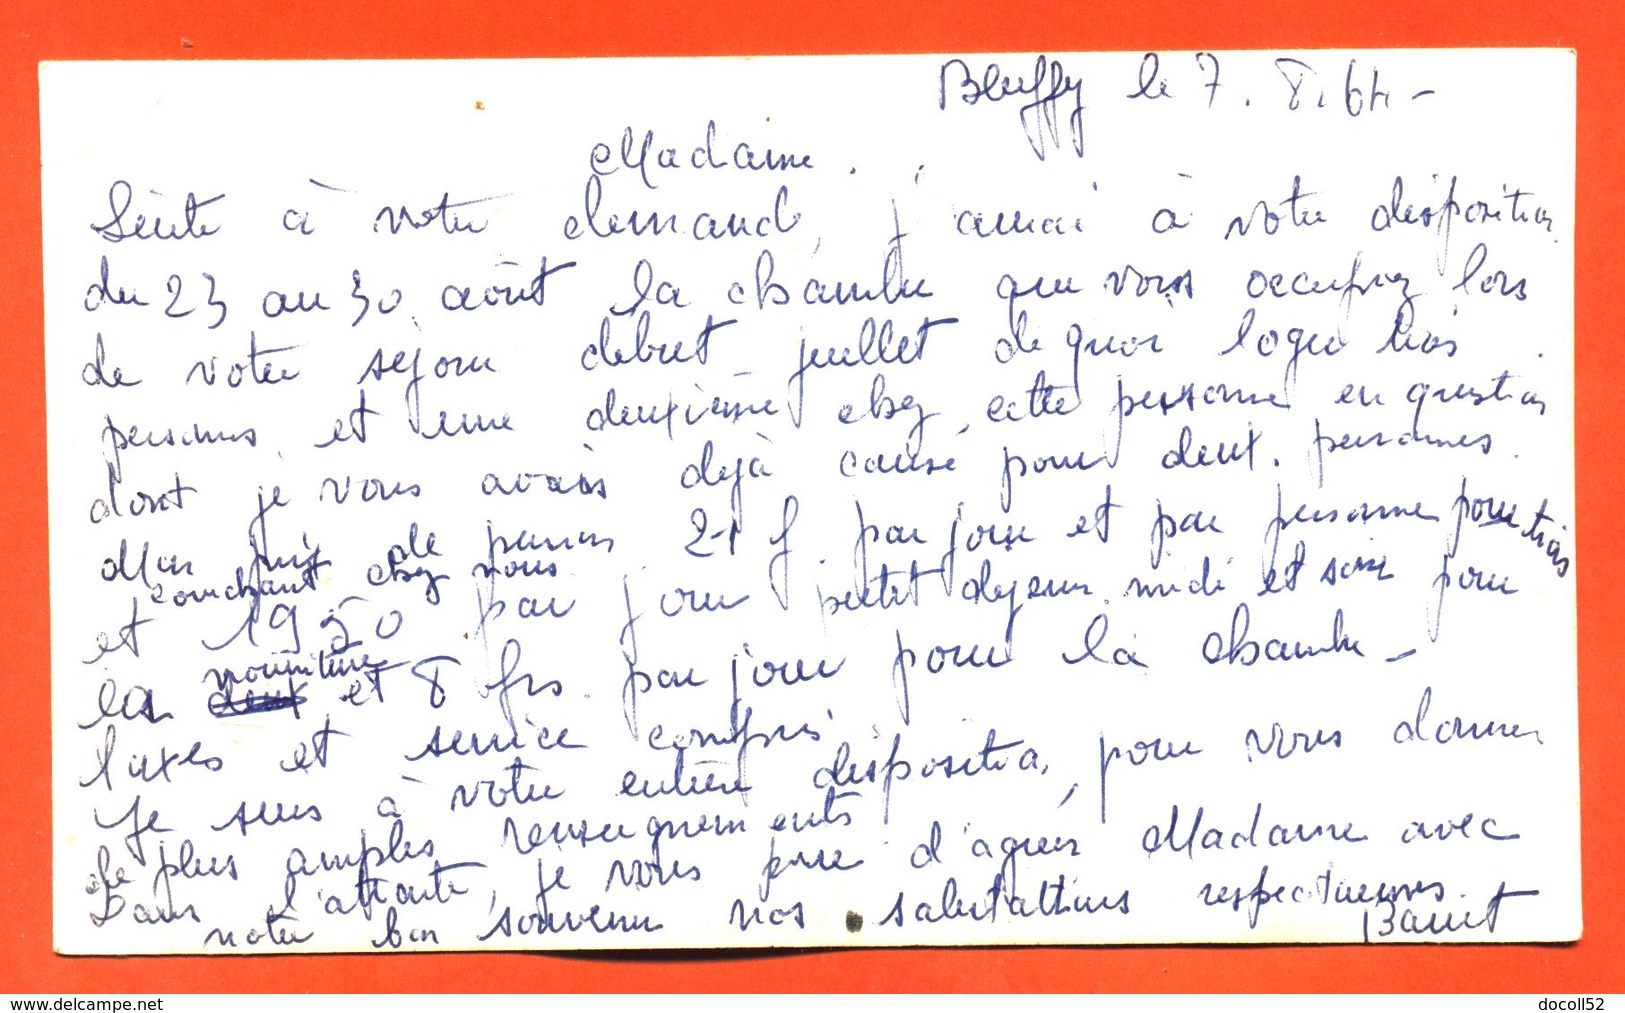 Bluffy le 7. 8. 64 -
Madame.
Suite à votre demande, j'aurai à votre disposition
du 23 au 30 août la chambre que vous occupiez lors
de votre séjour début juillet de quoi loger trois
personnes et une deuxième chez cette personne en question
dont je vous avais déjà causé pour deux personnes.
Mon prix de pension 21 f. par jour et par personne pour trois
couchant chez vous
et 19 50 par jour petit dejeuner midi et soir pour
la nourriture et 8 frs. par jour pour la chambre -
taxes et service compris
Je suis à votre entière disposition, pour vous donner
de plus amples renseignements
Dans l'attente, je vous prie d'agréer Madame avec
notre bon souvenir nos salutations respectueuses.
www.delcampe.net
docoll52